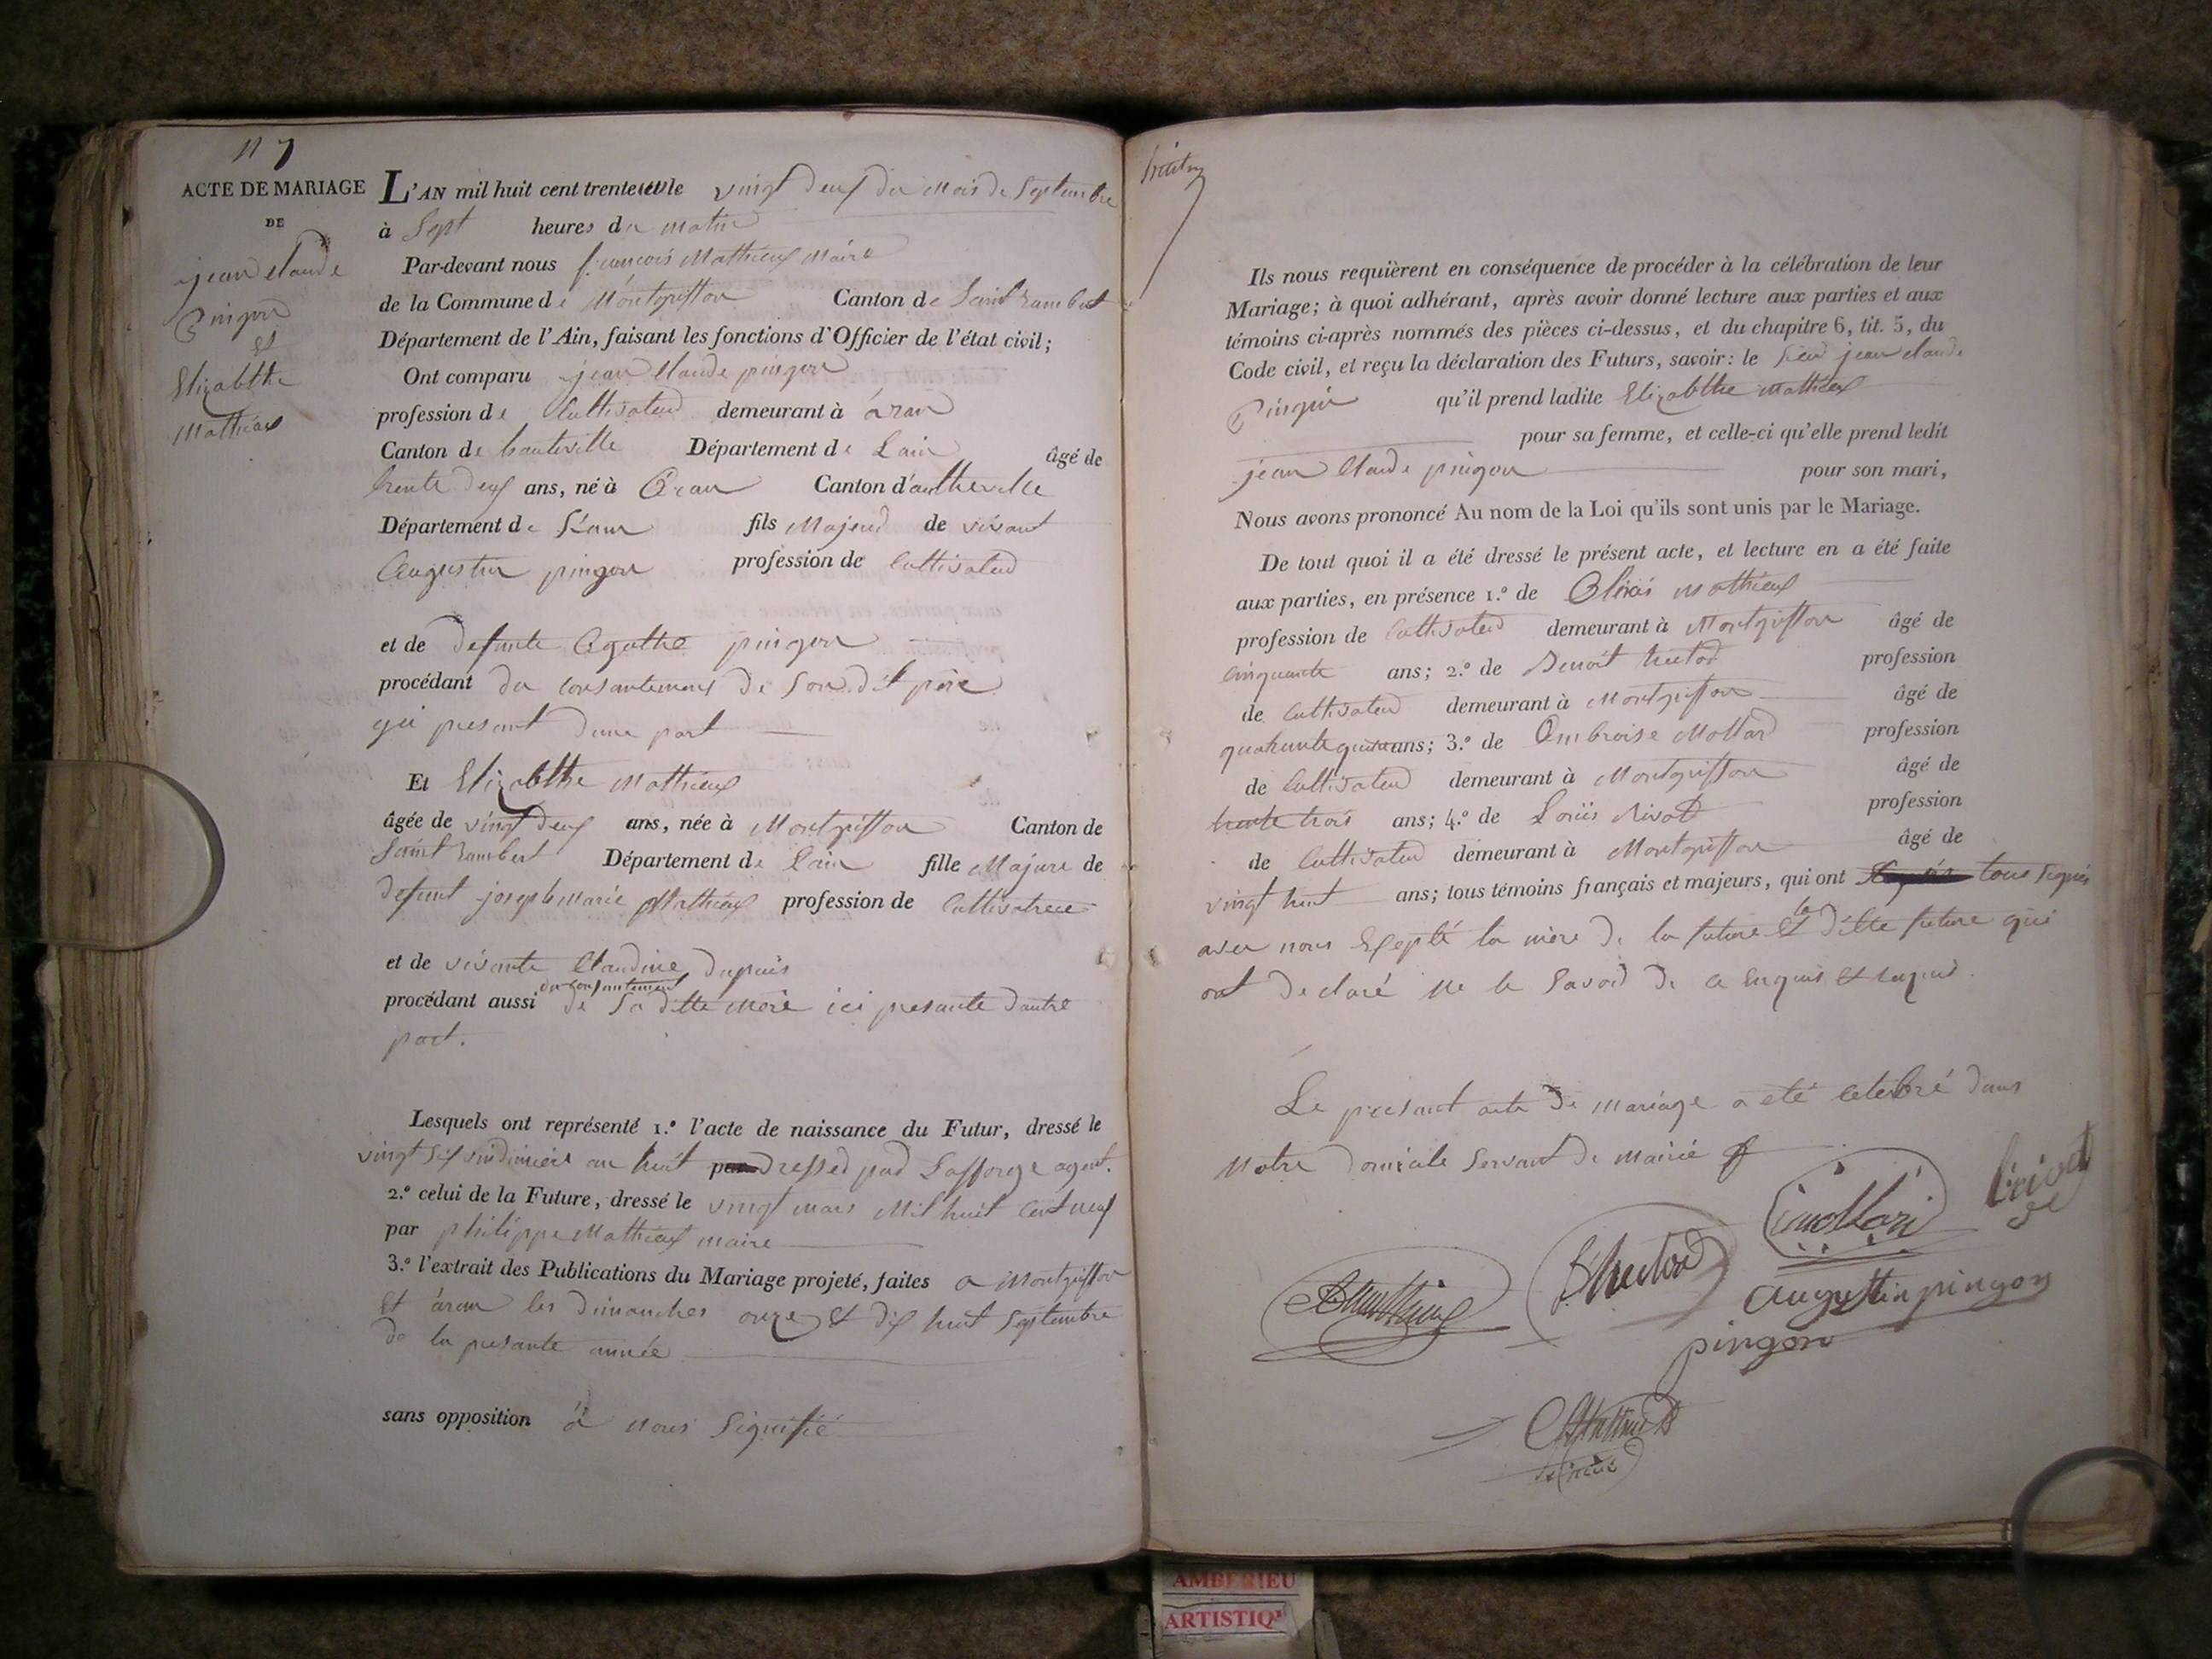 N 7
ACTE DE MARIAGE
DE
jean claude
Pingon
et
Elizabthe
Mathieux
L'AN mil huit cent trente et un le vingt deux du mois de Septembre
à Sept heures du matin
Par-devant nous françois Mathieux Maire
de la Commune de Montgriffon Canton de Saint rambert
Département de l'Ain, faisant les fonctions d'Officier de l'état civil;
Ont comparu jean Claude pingon
profession de Cultivateur demeurant à áran
Canton de hauteville Département de Lain âgé de
trente deux ans, né à Aran Canton d'autheville
Département de L'ain fils Majeur de vivant
Augustin pingon profession de Cultivateur
et de defunte Agathe pingon
procédant du consantement de Son dit père
qui présent d'une part
Et Elizabthe Mathieux
âgée de vingt deux ans, née à Montgriffon Canton de
Saint rambert Département de Lain fille Majure de
defunt joseph marie Mathieux profession de Cultivatrece
et de vivante Claudine Dupuis
procédant aussi du consantement de Sa ditte mere ici presante d'autre
part.
Lesquels ont représenté 1.º l'acte de naissance du Futur, dressé le
vingt six vindimière an huit dressed par Lafforge agent.
2.º celui de la Future, dressé le vingt mars Mil huit Cent neuf
par philippe Mathieux maire
3.º l'extrait des Publications du Mariage projeté, faites a Montgriffon
et áran les dimanches onze et dix huit Septembre
de la presante année
sans opposition à nous Signifié
Ils nous requièrent en conséquence de procéder à la célébration de leur
Mariage; à quoi adhérant, après avoir donné lecture aux parties et aux
témoins ci-après nommés des pièces ci-dessus, et du chapitre 6, tit. 5, du
Code civil, et reçu la déclaration des Futurs, savoir: le Sieur jean claude
Pingon qu'il prend ladite Elizabthe Mathieux
pour sa femme, et celle-ci qu'elle prend ledit
jean Claude pingon pour son mari,
Nous avons prononcé Au nom de la Loi qu'ils sont unis par le Mariage.
De tout quoi il a été dressé le présent acte, et lecture en a été faite
aux parties, en présence 1.º de Mathieux
profession de Cultivateur demeurant à Montgriffon âgé de
cinquante ans; 2.º de Benoit profession
de Cultivateur demeurant à Montgriffon âgé de
quarante ans; 3.º de Ambroise Mollard profession
de Cultivateur demeurant à Montgriffon âgé de
trente trois ans; 4.º de Louis Rivot profession
de Cultivateur demeurant à Montgriffon âgé de
vingt huit ans; tous témoins français et majeurs, qui ont tous Signés
avec nous Exepté la mère de la future et la ditte future qui
ont declaré ne le Savoir de ce Enquis et requis.
Le présent acte de mariage a été celebré dans
notre domicile Servant de mairie
augustin pingon
pingon
AMBERIEU
ARTISTIQ